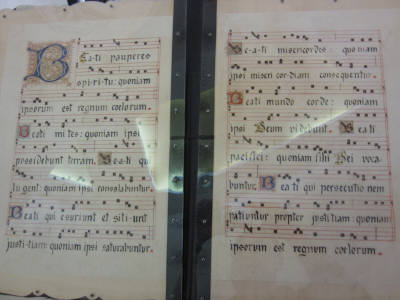 Beati pauperes
spiritu: quoniam
ipsorum est regnum coelorum.
Beati mites: quoniam ipsi
possidebunt terram. Beati qui
lugent: quoniam ipsi consolabuntur.
Beati qui esuriunt et sitiunt
justitiam: quoniam ipsi saturabuntur.
Beati misericordes: quoniam
ipsi misericordiam consequentur.
Beati mundo corde: quoniam
ipsi Deum videbunt. Beati
pacifici: quoniam filii Dei voca
buntur. Beati qui persecutionem
patiuntur propter justitiam quoniam
ipsorum est regnum coelorum.